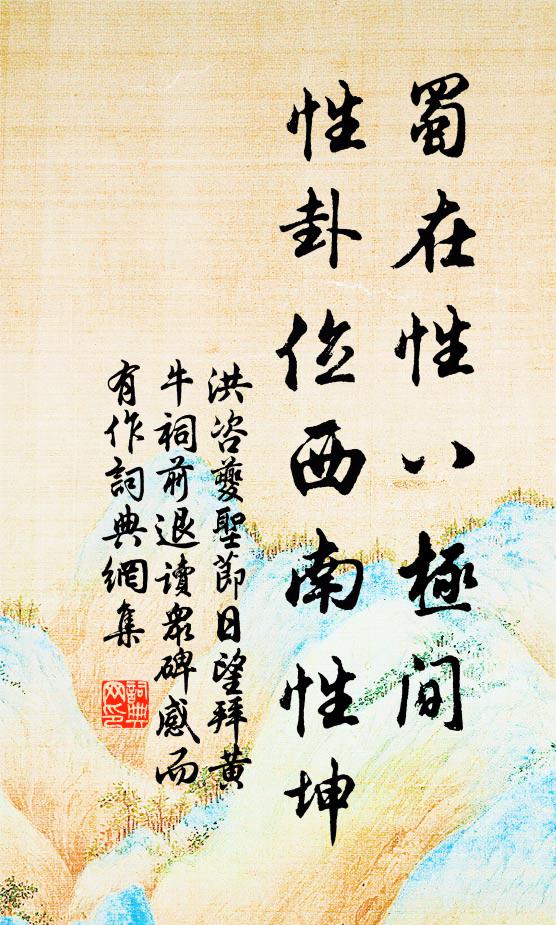 蜀在性八極間
性卦位西南性坤
洪咨夔聖節日望拜黄
牛祠前退讀衆碑感而
有作詞典網集
詞典
网印